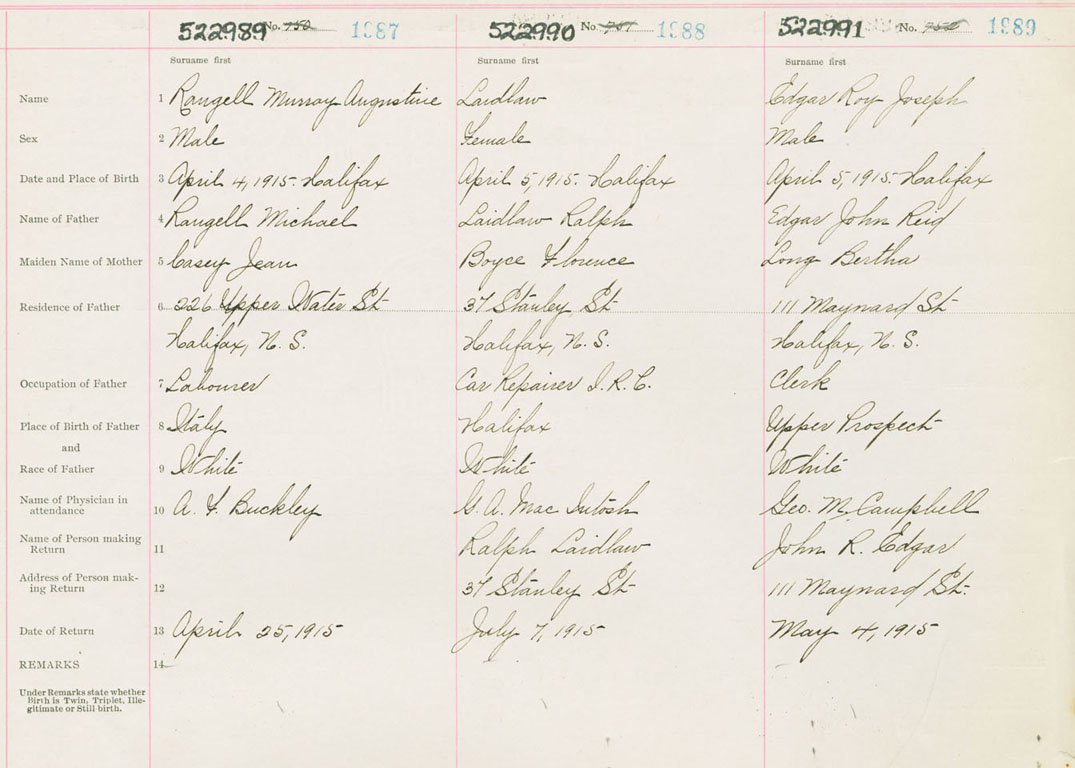 522989 No. 1987 522990 No. 1988 522991 No. 1989
Surname first Surname first Surname first
Name 1 Rangell Murray Augustine Laidlaw Edgar Roy Joseph
Sex 2 Male Female Male
Date and Place of Birth 3 April 4, 1915. Halifax April 5, 1915. Halifax April 5, 1915. Halifax
Name of Father 4 Rangell Michael Laidlaw Ralph Edgar John Reid
Maiden Name of Mother 5 Casey Jean Boyce Florence Long Bertha
Residence of Father 6 226 Upper Water St 37 Stanley St 111 Maynard St
Halifax, N. S. Halifax, N. S. Halifax, N. S.
Occupation of Father 7 Labourer Car Repairer I. R. C. Clerk
Place of Birth of Father 8 Italy Halifax Upper Prospect
and
Race of Father 9 White White White
Name of Physician in
attendance 10 A. F. Buckley G. A. Mac Intosh Geo. M. Campbell
Name of Person making
Return 11 Ralph Laidlaw John R. Edgar
Address of Person mak-
ing Return 12 37 Stanley St 111 Maynard St.
Date of Return 13 April 25, 1915 July 7, 1915 May 4, 1915
REMARKS 14
Under Remarks state whether
Birth is Twin, Triplet, Ille-
gitimate or Still birth.